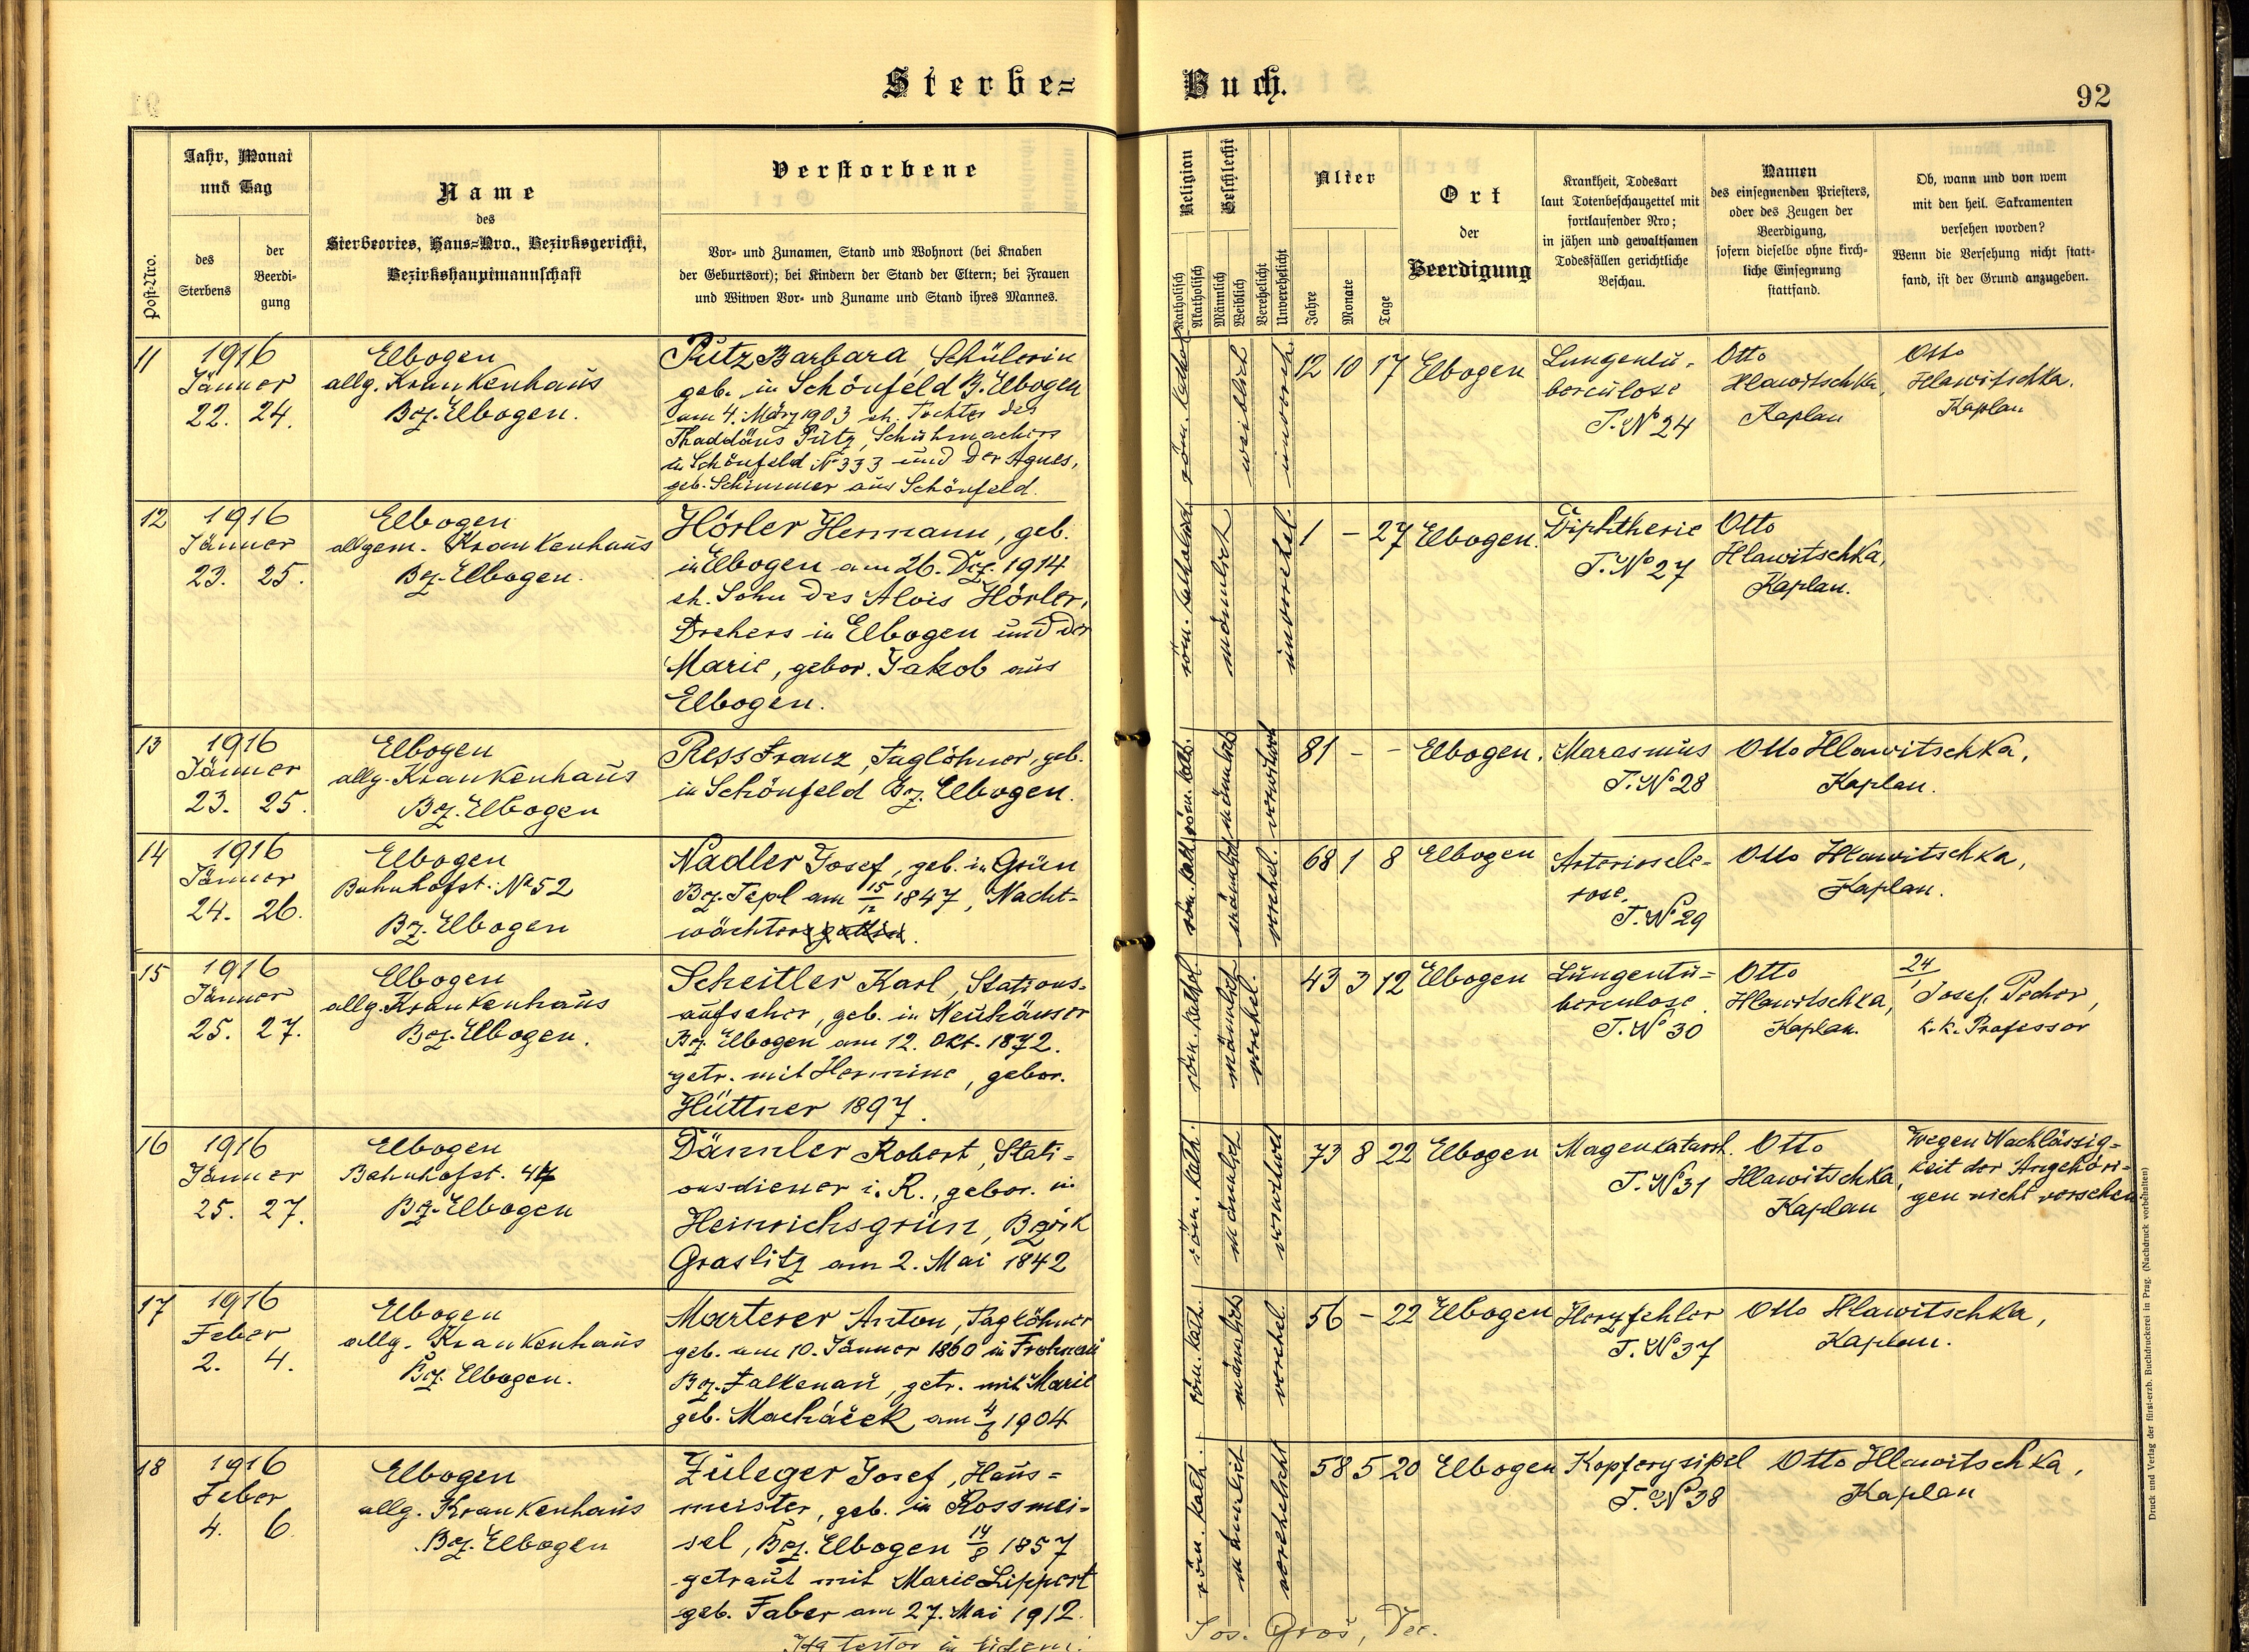 Sterbe= Buch.
92
Post-Nro.
Jahr, Monat
und Tag
des
Sterbens
der
Beerdi-
gung
Name
des
Sterbeortes, Haus=Nro., Bezirksgericht,
Bezirkshauptmannschaft
Verstorbene
Vor- und Zunamen, Stand und Wohnort (bei Knaben
der Geburtsort); bei Kindern der Stand der Eltern; bei Frauen
und Witwen Vor- und Zuname und Stand ihres Mannes.
Religion
Katholisch
Akatholisch
Geschlecht
Männlich
Weiblich
Verehelicht
Unverehelicht
Alter
Jahre
Monate
Tage
Ort
der
Beerdigung
Krankheit, Todesart
laut Totenbeschauzettel mit
fortlaufender Nro;
in jähen und gewaltsamen
Todesfällen gerichtliche
Beschau.
Namen
des einsegnenden Priesters,
oder des Zeugen der
Beerdigung,
sofern dieselbe ohne kirch-
liche Einsegnung
stattfand.
Ob, wann und von wem
mit den heil. Sakramenten
versehen worden?
Wenn die Versehung nicht statt-
fand, ist der Grund anzugeben.
11
1916
Jänner
22. 24.
Elbogen
allg. Krankenhaus
Bez. Elbogen.
Pütz Barbara Schülerin
geb. in Schönfeld B. Elbogen
am 4. März 1903 eh. Tochter des
Thaddäus Pütz, Schuhmachers
in Schönfeld No 333 und der Agnes,
geb. Schimmer aus Schönfeld.
röm. kathol.
weiblich
unvereh.
12 10 17
Elbogen
Lungentu-
berculose
T. No 24
Otto
Hlawitschka,
Kaplan
Otto
Hlawitschka.
Kaplan
12
1916
Jänner
23. 25.
Elbogen
allgem. Krankenhaus
Bez. Elbogen.
Hörler Hermann, geb.
in Elbogen am 26. Dez. 1914
eh. Sohn des Alois Hörler,
Drehers in Elbogen und der
Marie, gebor. Jakob aus
Elbogen.
röm. katholisch
männlich
unverehel.
1 - 27
Elbogen.
Diphtherie
T. No 27
Otto
Hlawitschka,
Kaplan.
13
1916
Jänner
23. 25.
Elbogen
allg. Krankenhaus
Bez. Elbogen
Ress Franz, Taglöhner, geb.
in Schönfeld Bez. Elbogen.
röm. kath.
männlich
verwitwet
81 - -
Elbogen.
Marasmus
T. No 28
Otto Hlawitschka,
Kaplan.
14
1916
Jänner
24. 26.
Elbogen
Bahnhofst. No 52
Bez. Elbogen
Nadler Josef, geb. in Grün
Bez. Tepl am 15/12 1847, Nacht-
wächtersgattin.
röm. kath.
männlich
verehel.
68 1 8
Elbogen
Arterioscle-
rose.
T. No 29
Otto Hlawitschka,
Kaplan.
15
1916
Jänner
25. 27.
Elbogen
allg. Krankenhaus
Bez. Elbogen.
Scheitler Karl, Stations-
aufseher, geb. in Neuhäuser
Bez. Elbogen am 12. Okt. 1872.
getr. mit Hermine, gebor.
Hüttner 1897.
röm. kathol.
männlich
verehel.
43 3 12
Elbogen
Lungentu=
berculose
T. No 30
Otto
Hlawitschka,
Kaplan.
24/1
Josef Pecher,
k. k. Professor
16
1916
Jänner
25. 27.
Elbogen
Bahnhofst. 47
Bez. Elbogen
Dännler Robert, Stati=
onsdiener i. R., gebor. in
Heinrichsgrün, Bezirk
Graslitz am 2. Mai 1842
röm. kath.
männlich
verwitwet
73 8 22
Elbogen
Magenkatarrh.
T. No 31
Otto
Hlawitschka,
Kaplan
Wegen Nachlässig=
keit der Angehöri-
gen nicht versehen
17
1916
Feber
2. 4.
Elbogen
allg. Krankenhaus
Bez. Elbogen.
Marterer Anton, Taglöhner
geb. am 10. Jänner 1860 in Frohnau
Bez. Falkenau, getr. mit Marie
geb. Macháček, am 4/6 1904
röm. kath.
männlich
verehel.
56 - 22
Elbogen
Herzfehler
T. No 37
Otto Hlawitschka,
Kaplan.
18
1916
Feber
4. 6.
Elbogen
allg. Krankenhaus
Bez. Elbogen
Zuleger Josef, Haus=
meister, geb. in Rossmei-
sel, Bez. Elbogen 14/8 1857
getraut mit Marie Lippert
geb. Faber am 27. Mai 1912.
röm. kath.
männlich
verehelicht
58 5 20
Elbogen
Kopferysipel
T. No 38
Otto Hlawitschka,
Kaplan
Jos. Groš, Dec.
Druck und Verlag der fürst-erzb. Buchdruckerei in Prag. (Nachdruck vorbehalten)